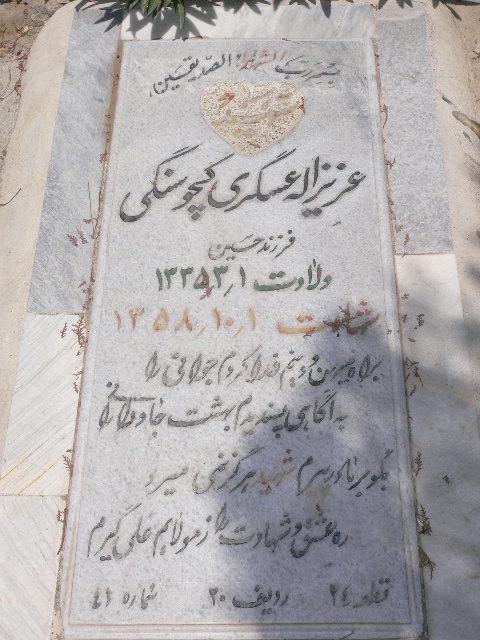 بسم رب الشهداء الصدیقین
شهید
عزیزاله عسگری کچوسنگی
فرزند حسین
ولادت ۱٫۳٫۱۳۳۵
شهادت ۱٫۱۰٫۱۳۵۸
براه دین و میهنم فدا کردم جوانی را
به آگاهی پسندیدم بهشت جاودانی را
بگو بر مادرم شهید هرگز نمی میرد
ره عشق و شهادت را ز مولایم علی گیرم
قطعه ۲۴ ردیف ۲۰ شماره ۴۱